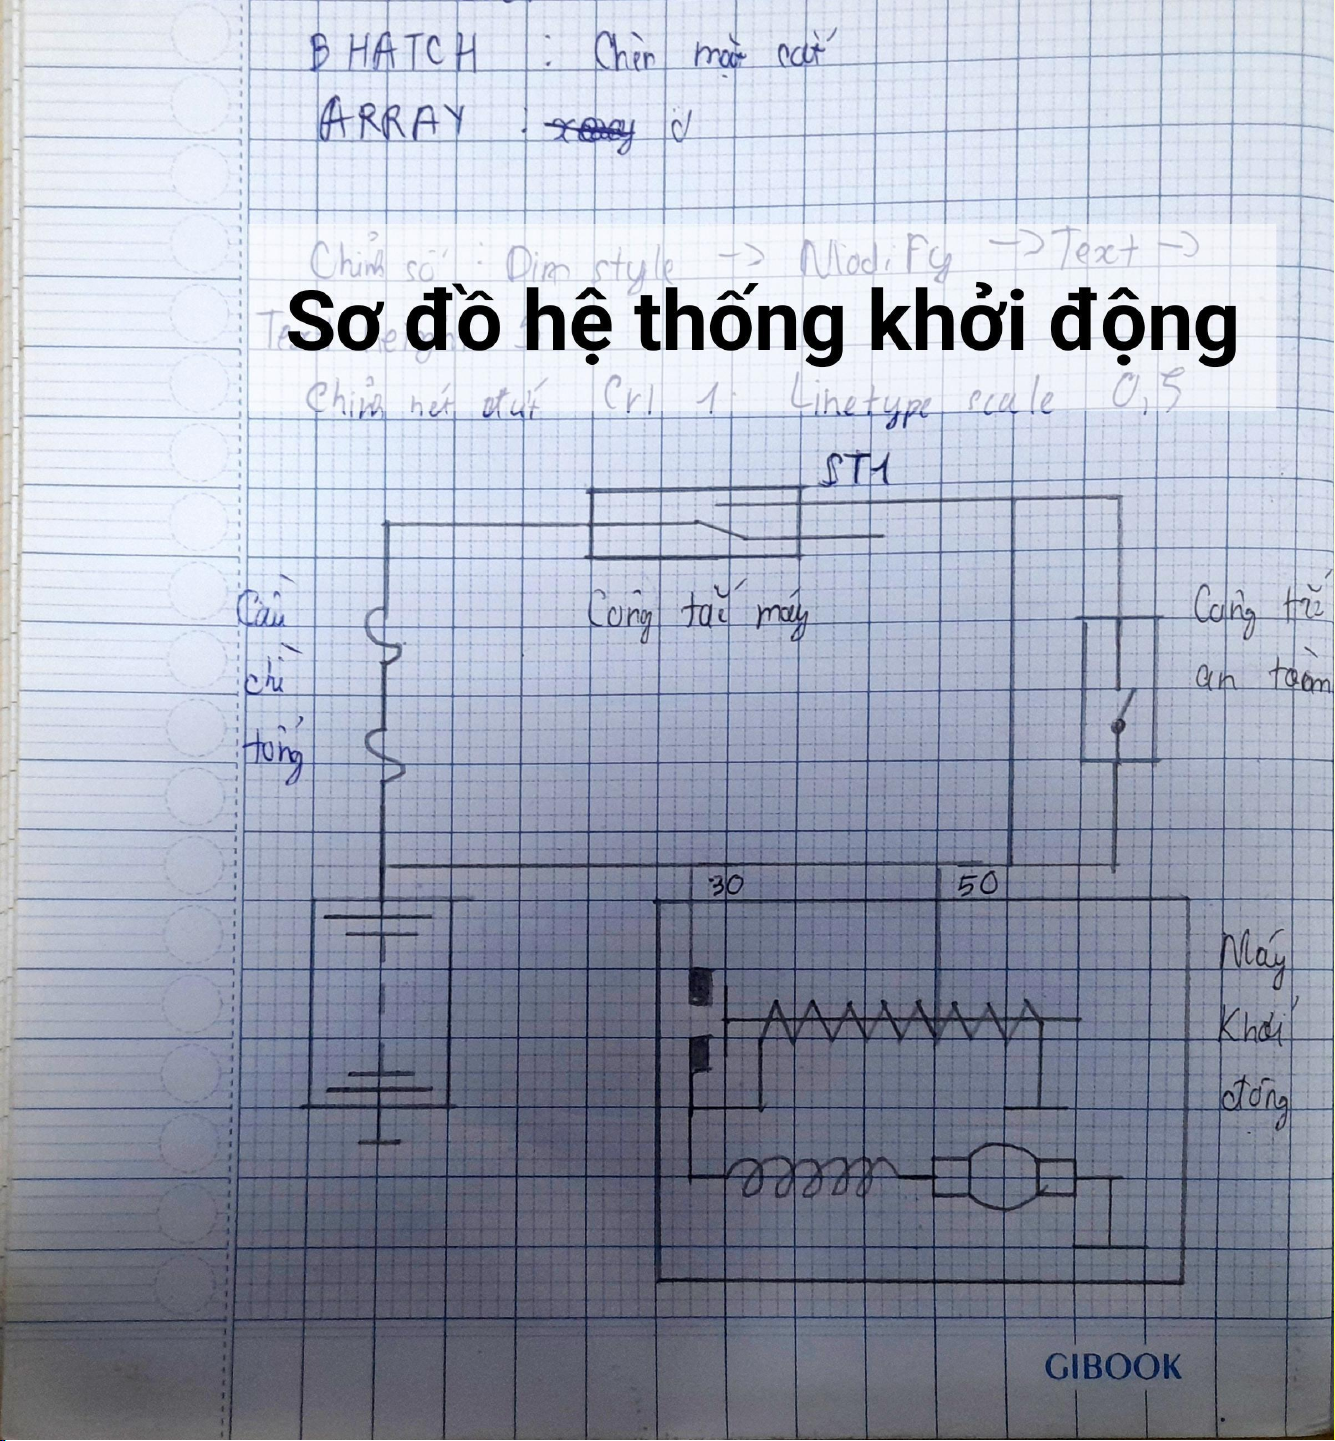 BHATCH : Chèn mặt cắt
ARRAY :
Chỉnh số : Dim style -> Modify -> Text ->
Sơ đồ hệ thống khởi động
Chỉnh nét đứt Crl 1. Linetype scale 0,5
ST1
Công tắc máy
Cầu
chì
tổng
Công tắc
an toàn
30
50
Máy
Khởi
động
GIBOOK